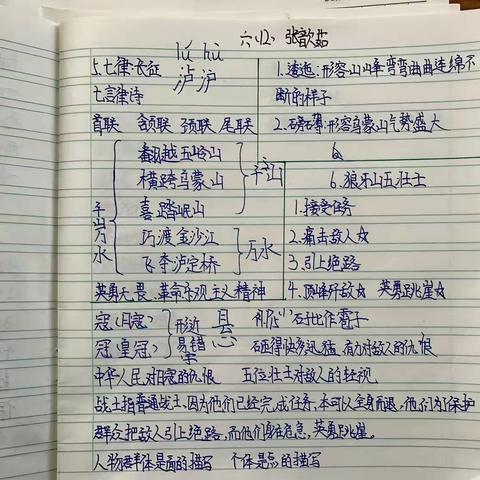 六(2) 张歆茹
lú hù
5.七律·长征 泸沪
七言律诗
首联 颔联 颈联 尾联
翻越五岭山
横跨乌蒙山 千山
喜踏岷山
千山万水
巧渡金沙江
飞夺泸定桥 万水
英勇无畏、革命乐观主义精神
1.逶迤:形容山峰弯弯曲曲连绵不
断的样子
2.磅礴:形容乌蒙山气势盛大
6.狼牙山五壮士
1.接受任务
2.痛击敌人☆
3.引上绝路
4.顶峰歼敌☆ 英勇跳崖☆
寇(日寇) 形近 县
冠(皇冠) 易错 悬
把石头比作雹子
砸得快多迅猛 有力对敌人的仇恨
中华人民对日寇的仇恨 五位壮士对敌人的轻视
战士指普通战士,因为他们已经完成任务,本可以全身而退,他们为了保护
群众把敌人引上绝路,而他们身在危急,英勇跳崖。
人物群体是面的描写 个体是点的描写